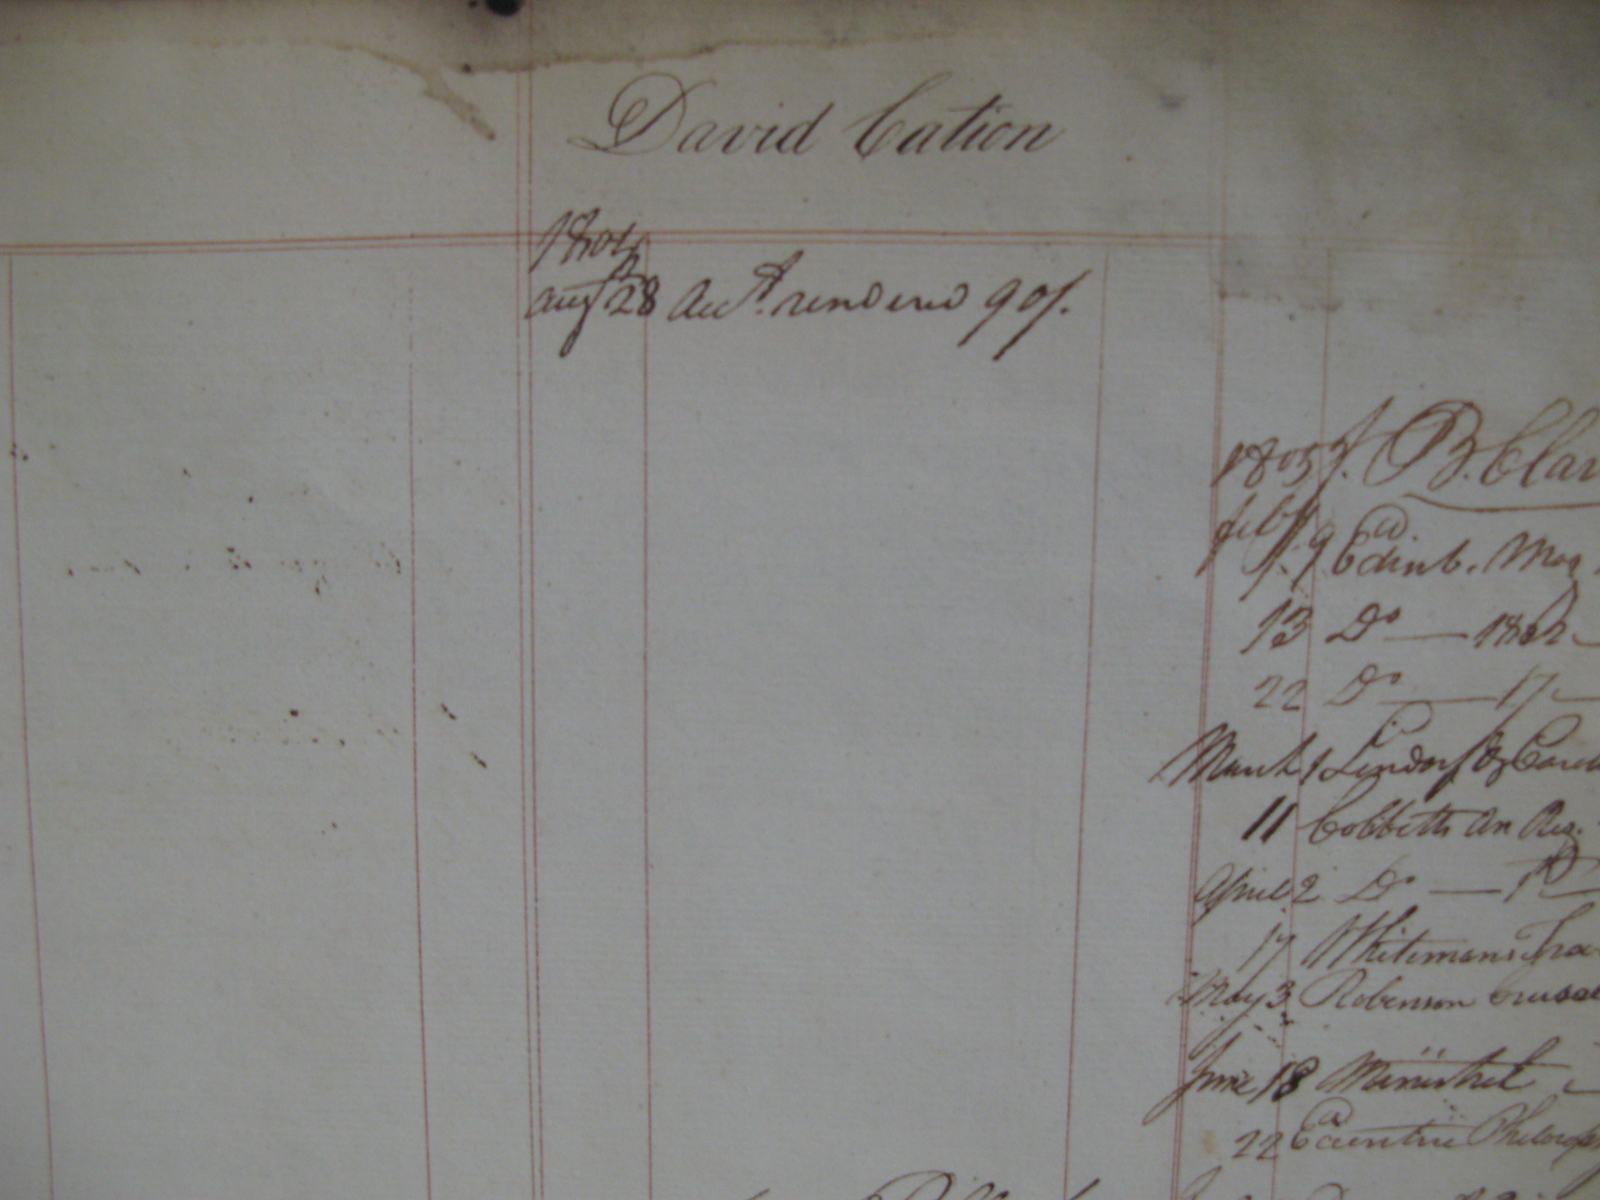 David Cation
1804
augt 28 Acct. rendered 90/.
1805 J. B. Clar
feby. 9 Edinb. Mag
13 Do — 1802 —
22 Do — 17 —
March 1 Lindorf & Caro
11 Cobbetts An Reg.
April 2 Do —
17 Whitemans Tra
May 3 Robinson Crusoe
June 18 Minstrel
22 Eccentric Philosop